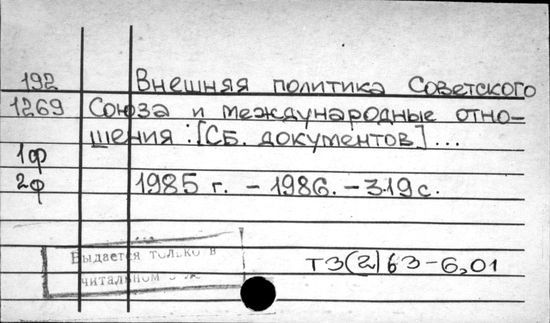 192 Внешняя политика Советского
1269 Союза и международные отно-
шения : [Сб. документов] ...
1ф
2ф 1985 г. – 1986. – 319 с.
Выдается только в
читальном
Т3(2)63-6,01